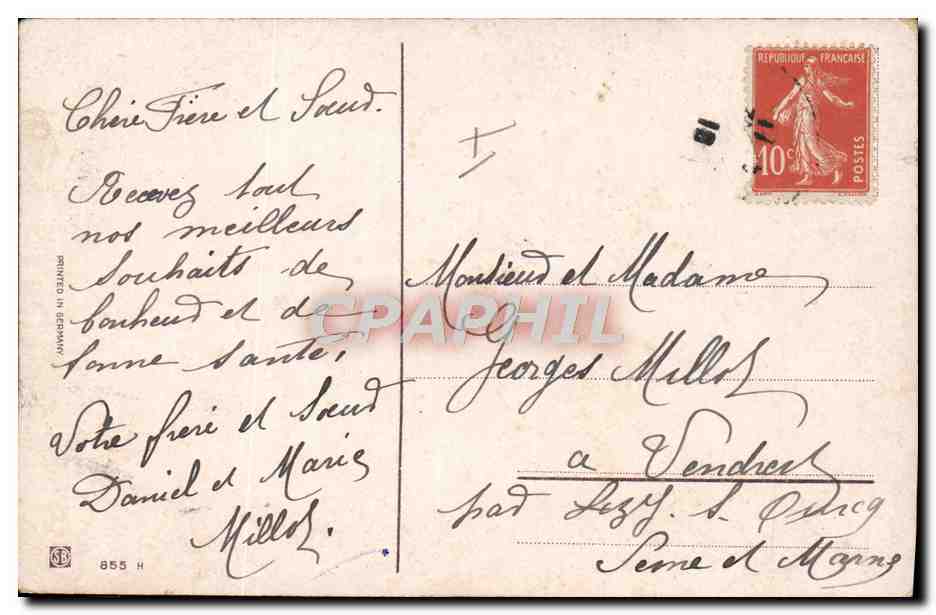 Chère Frère et Sœur.
Recevez tout
nos meilleurs
souhaits de
bonheur et de
bonne santé,
Votre frère et Sœur
Daniel et Marie
Millot.
PRINTED IN GERMANY
SB
855 H
REPUBLIQUE FRANÇAISE
10c
POSTES
Monsieur et Madame
Georges Millot
a Vendrest
par Lizy. s. Ourcq
Seine et Marne
CPAPHIL